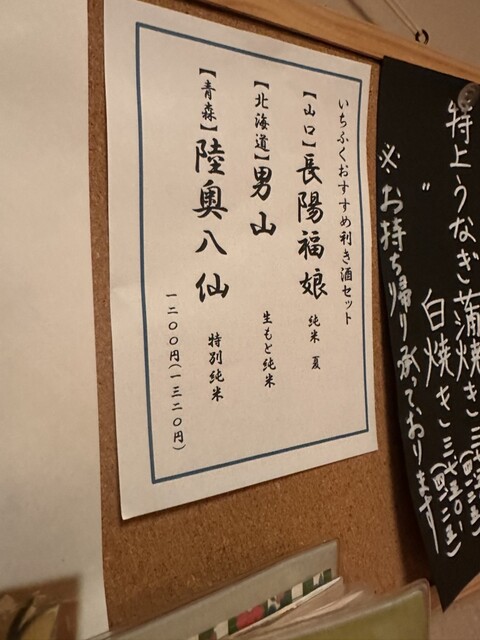 いちふくおすすめ利き酒セット
【山口】長陽福娘 純米 夏
【北海道】男山 生もと純米
【青森】陸奥八仙 特別純米
一二〇〇円(一三二〇円)
特上うなぎ蒲焼き
〃 白焼き
※お持ち帰り承っております